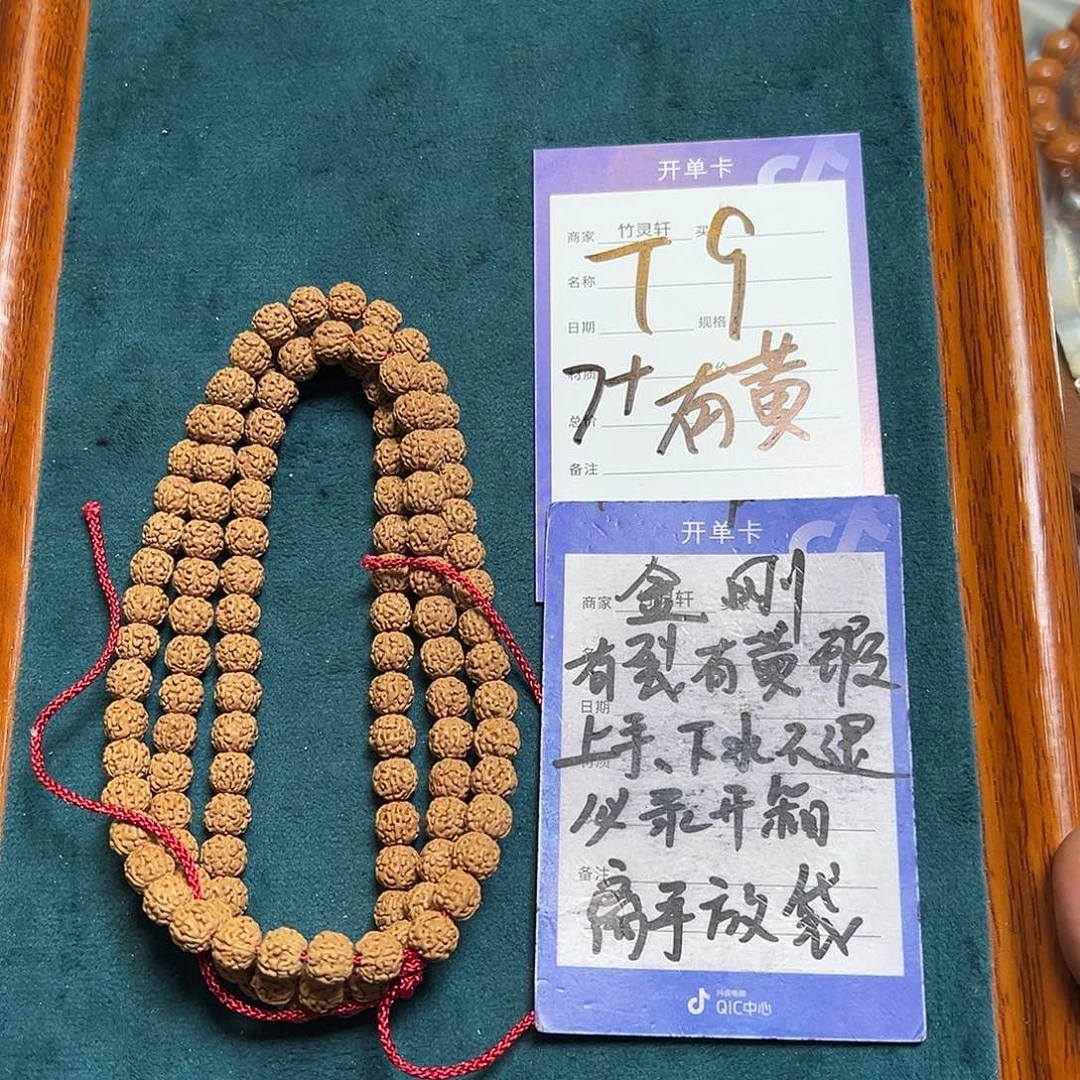 开单卡
商家 竹灵轩 买
T9
名称
日期 规格
7+有黄
总价
备注
开单卡
商家 轩
金刚
有裂有黄瑕
日期
上手、下水不退
必录开箱
备注
离手放袋
抖音电商
QIC中心